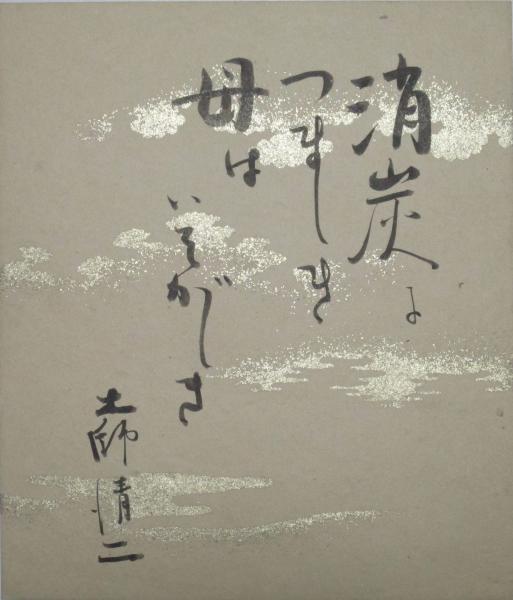 消炭に
つましき
母は
いそがしき
土師清二